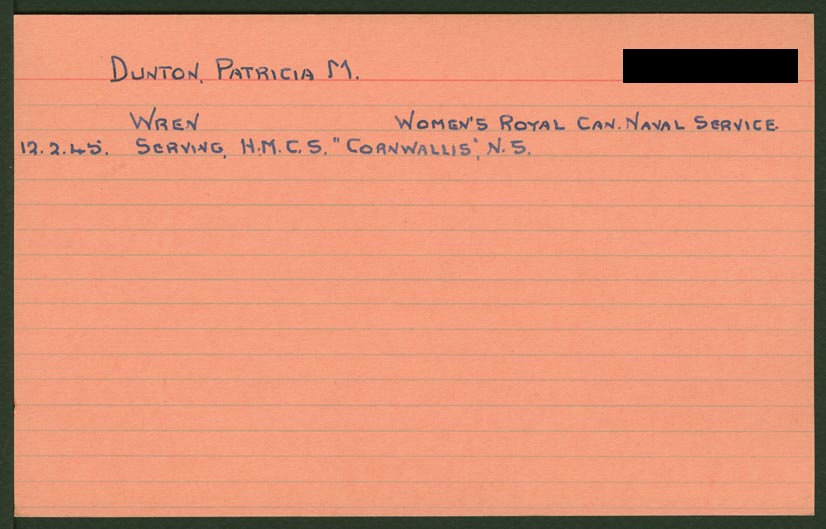 DUNTON, PATRICIA M.
WREN WOMEN'S ROYAL CAN. NAVAL SERVICE.
12.2.45. SERVING, H.M.C.S. "CORNWALLIS", N.S.